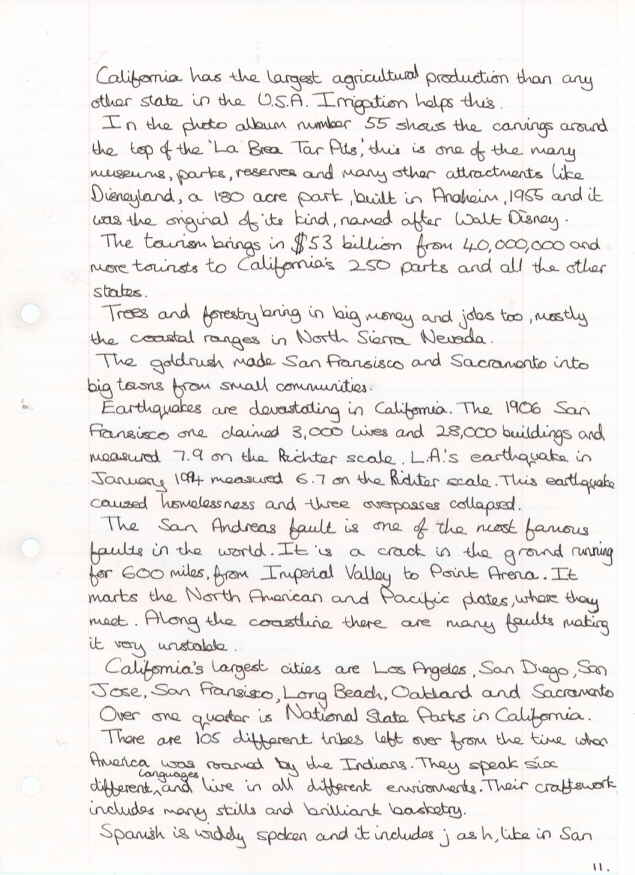 California has the largest agricultural production than any
other state in the U.S.A. Irrigation helps this.
In the photo album number 55 shows the carvings around
the top of the 'La Brea Tar Pits,' this is one of the many
museums, parks, reserves and many other attractments like
Disneyland, a 180 acre park, built in Anaheim, 1955 and it
was the original of its kind, named after Walt Disney.
The tourism brings in $53 billion from 40,000,000 and
more tourists to California's 250 parks and all the other
states.
Trees and forestry bring in big money and jobs too, mostly
the coastal ranges in North Sierra Nevada.
The goldrush made San Fransisco and Sacramento into
big towns from small communities.
Earthquakes are devastating in California. The 1906 San
Fransisco one claimed 3,000 lives and 28,000 buildings and
measured 7.9 on the Richter scale. L.A.'s earthquake in
January 1994 measured 6.7 on the Richter scale. This earthquake
caused homelessness and three overpasses collapsed.
The San Andreas fault is one of the most famous
faults in the world. It is a crack in the ground running
for 600 miles, from Imperial Valley to Point Arena. It
marks the North American and Pacific plates, where they
meet. Along the coastline there are many faults making
it very unstable.
California's largest cities are Los Angeles, San Diego, San
Jose, San Fransisco, Long Beach, Oakland and Sacramento
Over one quarter is National State Parks in California.
There are 105 different tribes left over from the time when
America was roamed by the Indians. They speak six
different languages, and live in all different enviroments. Their craftswork
includes many skills and brilliant basketry.
Spanish is widly spoken and it includes j as h, like in San
11.